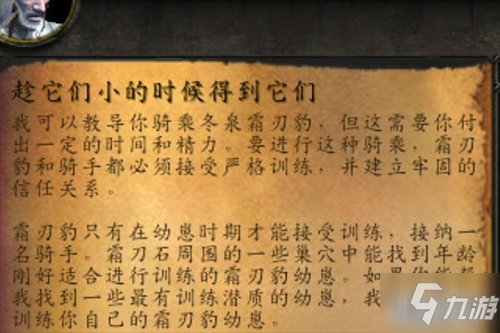 趁它们小的时候得到它们
我可以教导你骑乘冬泉霜刃豹，但这需要你付
出一定的时间和精力。要进行这种骑乘，霜刃
豹和骑手都必须接受严格训练，并建立牢固的
信任关系。
霜刃豹只有在幼崽时期才能接受训练，接纳一
名骑手。霜刃石周围的一些巢穴中能找到年龄
刚好适合进行训练的霜刃豹幼崽。如果你能帮
我找到一些最有训练潜质的幼崽，我
训练你自己的霜刃豹幼崽。
九游